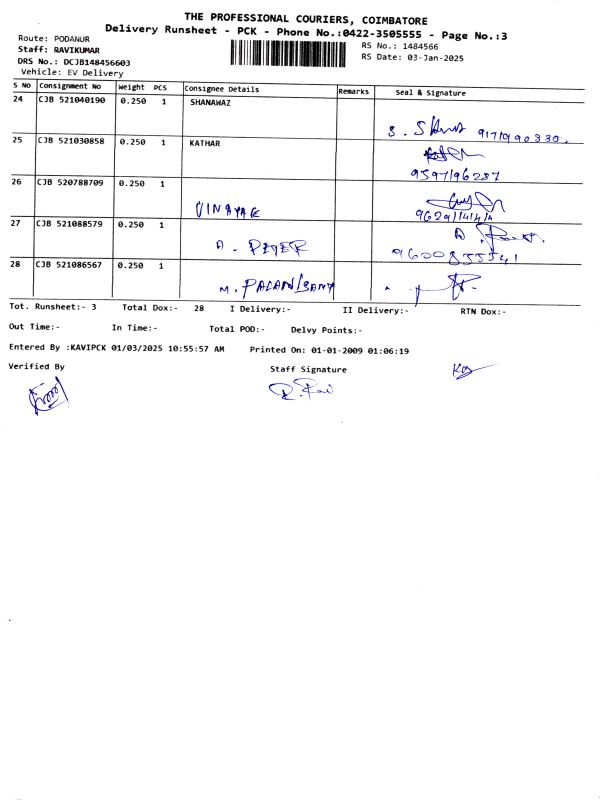 THE PROFESSIONAL COURIERS, COIMBATORE
Delivery Runsheet - PCK - Phone No.:0422-3505555 - Page No.:3
Route: PODANUR
RS No.: 1484566
Staff: RAVIKUMAR
RS Date: 03-Jan-2025
DRS No.: DCJB148456603
Vehicle: EV Delivery
S No Consignment No Weight PCS Consignee Details Remarks Seal & Signature
24 CJB 521040190 0.250 1 SHANAWAZ
25 CJB 521030858 0.250 1 KATHAR
9597196287
26 CJB 520788709 0.250 1
VINAYAK
27 CJB 521088579 0.250 1
A. PETER
9600855541
28 CJB 521086567 0.250 1
M. PALANISAMY
Tot. Runsheet:- 3 Total Dox:- 28 I Delivery:- II Delivery:- RTN Dox:-
Out Time:- In Time:- Total POD:- Delvy Points:-
Entered By :KAVIPCK 01/03/2025 10:55:57 AM Printed On: 01-01-2009 01:06:19
Verified By Staff Signature
R. Ravi